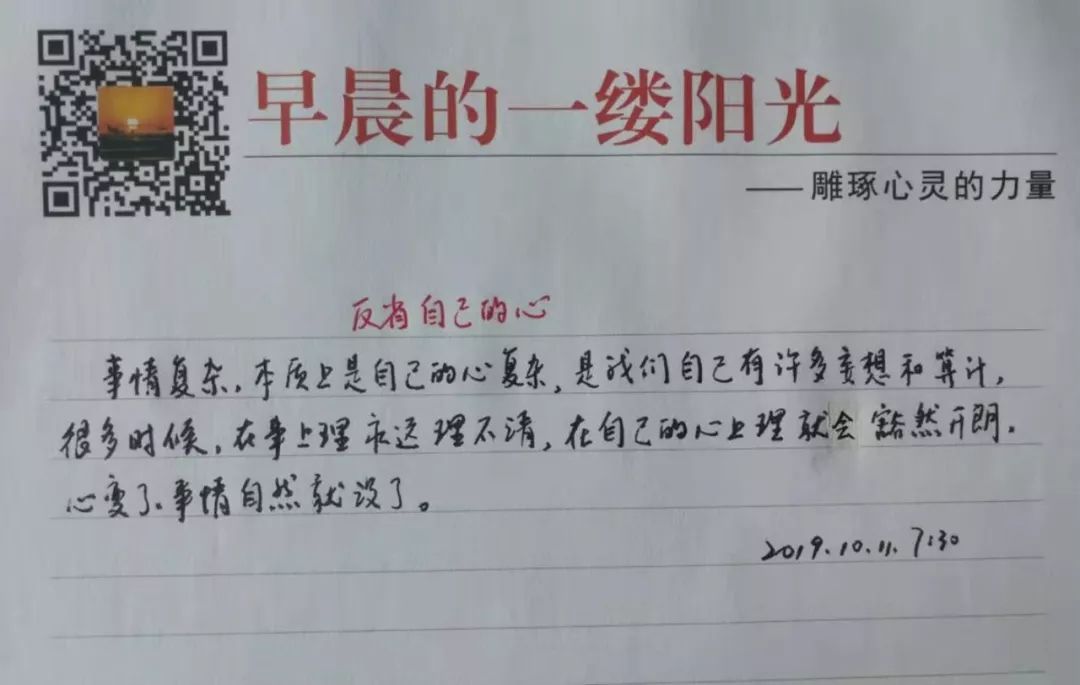 早晨的一缕阳光
——雕琢心灵的力量
反省自己的心
事情复杂,本质上是自己的心复杂,是我们自己有许多妄想和算计,
很多时候,在事上理永远理不清,在自己的心上理就会豁然开朗.
心变了、事情自然就没了。
2019.10.11.7:30